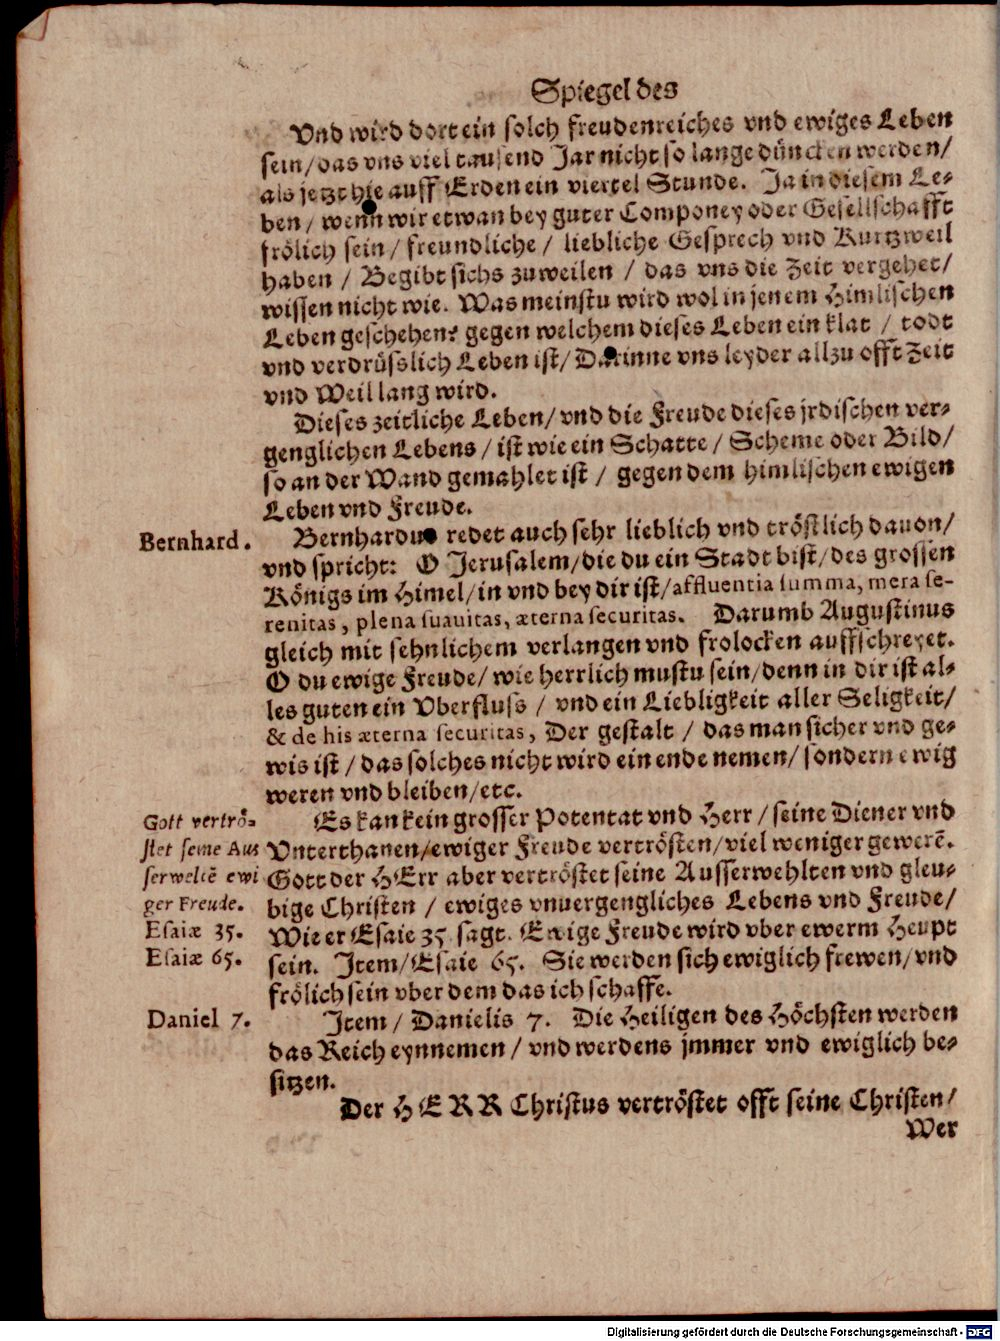 Spiegel des
Vnd wird dort ein solch freudenreiches vnd ewiges Leben
sein/das vns viel tausend Jar nicht so lange düncken werden/
als jetzt hie auff Erden ein viertel Stunde. Ja in diesem Le-
ben/ wenn wir etwan bey guter Componey oder Gesellschafft
frölich sein/ freundliche/ liebliche Gesprech vnd Kurtzweil
haben/ Begibt sichs zuweilen/ das vns die Zeit vergehet/
wissen nicht wie. Was meinstu wird wol in jenem Himlischen
Leben geschehen? gegen welchem dieses Leben ein klat/ todt
vnd verdrüsslich Leben ist/ Darinne vns leyder allzu offt Zeit
vnd Weil lang wird.
Dieses zeitliche Leben/ vnd die Freude dieses jrdischen ver-
genglichen Lebens/ ist wie ein Schatte/ Scheme oder Bild/
so an der Wand gemahlet ist/ gegen dem himlischen ewigen
Leben vnd Freude.
Bernhard.
Bernhardus redet auch sehr lieblich vnd tröstlich dauon/
vnd spricht: O Jerusalem/die du ein Stadt bist/des grossen
Königs im Himel/in vnd bey dir ist/affluentia summa, mera se-
renitas, plena suauitas, æterna securitas. Darumb Augustinus
gleich mit sehnlichem verlangen vnd frolocken auffschreyet.
O du ewige Freude/ wie herrlich mustu sein/denn in dir ist al-
les guten ein Vberfluss/ vnd ein Liebligkeit aller Seligkeit/
& de his æterna securitas, Der gestalt/ das man sicher vnd ge-
wis ist/ das solches nicht wird ein ende nemen/ sondern ewig
weren vnd bleiben/etc.
Gott vertrö-
stet seine Aus
serweltē ewi
ger Freude.
Esaiæ 35.
Esaiæ 65.
Es kan kein grosser Potentat vnd Herr/ seine Diener vnd
Vnterthanen/ewiger Freude vertrösten/viel weniger gewerē.
Gott der HErr aber vertröstet seine Ausserwehlten vnd gleu-
bige Christen/ ewiges vnuergengliches Lebens vnd Freude/
Wie er Esaie 35 sagt. Ewige Freude wird vber ewerm Heupt
sein. Item/Esaie 65. Sie werden sich ewiglich frewen/vnd
frölich sein vber dem das ich schaffe.
Daniel 7.
Item/ Danielis 7. Die Heiligen des Höchsten werden
das Reich eynnemen/ vnd werdens jmmer vnd ewiglich be-
sitzen.
Der HERR Christus vertröstet offt seine Christen/
Wer
Digitalisierung gefördert durch die Deutsche Forschungsgemeinschaft - DFG